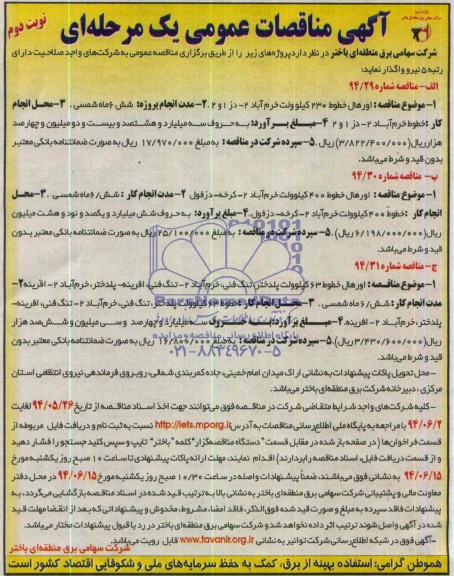 آگهی مناقصات عمومی یک مرحله‌ای
نوبت دوم
شرکت سهامی برق منطقه‌ای باختر در نظر دارد پروژه‌های زیر را از طریق برگزاری مناقصه عمومی به شرکت‌های واجد صلاحیت دارای
رتبه ۵ نیرو واگذار نماید:
الف- مناقصه شماره ۹۴/۲۹
۱-موضوع مناقصه: اورهال خطوط ۲۳۰ کیلوولت خرم‌آباد ۲- دز ۱ و ۲. ۲-مدت انجام پروژه: شش ۶ماه شمسی. ۳-محل انجام
کار: خطوط خرم‌آباد ۲- دز ۱ و ۲ ۴-مبلغ برآورد: به حروف سه میلیارد و هشتصد و بیست و دو میلیون و چهارصد
هزار ریال (۳/۸۲۲/۴۰۰/۰۰۰) ریال. ۵-سپرده شرکت در مناقصه: به مبلغ ۱۷/۹۷۰/۰۰۰ ریال به صورت ضمانتنامه بانکی معتبر
بدون قید و شرط می‌باشد.
پ- مناقصه شماره ۹۴/۳۰
۱-موضوع مناقصه: اورهال خطوط ۴۰۰ کیلوولت خرم‌آباد ۲-کرخه-دزفول ۲-مدت انجام کار: شش/۶ماه شمسی. ۳-محل
انجام کار: خطوط ۴۰۰ کیلوولت خرم‌آباد ۲-کرخه-دزفول. ۴-مبلغ برآورد: به حروف شش میلیارد و یکصد و نود و هشت میلیون
ریال (۶/۱۹۸/۰۰۰/۰۰۰ ریال). ۵-سپرده شرکت در مناقصه: به مبلغ ۲۵/۱۰۰/۰۰۰ ریال به صورت ضمانتنامه بانکی معتبر بدون
قید و شرط می‌باشد.
ج- مناقصه شماره ۹۴/۳۱
۱-موضوع مناقصه: اورهال خطوط ۶۳ کیلوولت پلدختر، تنگ فنی، خرم‌آباد ۲- تنگ فنی، افرینه- پلدختر، خرم‌آباد ۲- افرینه ۲-
مدت انجام کار: شش/۶ ماه شمسی. ۳-محل انجام کار: خطوط ۶۳ کیلوولت پلدختر، تنگ فنی، خرم‌آباد ۲- تنگ فنی، افرینه-
پلدختر، خرم‌آباد ۲- افرینه. ۴-مبلغ برآورد: به حروف سه میلیارد و چهارصد و سی میلیون و شش صد هزار
ریال (۳/۴۳۰/۶۰۰/۰۰۰ ریال). ۵-سپرده شرکت در مناقصه: به مبلغ ۱۶/۸۰۶/۰۰۰ ریال به صورت ضمانتنامه بانکی معتبر بدون
قید و شرط می‌باشد.
-محل تحویل پاکات پیشنهادات به نشانی اراک میدان امام خمینی، جاده کمربندی شمالی، روبروی فرماندهی نیروی انتظامی استان
مرکزی، دبیرخانه شرکت برق منطقه‌ای باختر می‌باشد.
-کلیه شرکت‌های واجد شرایط متقاضی شرکت در مناقصه فوق می‌توانند جهت اخذ اسناد مناقصه از تاریخ ۹۴/۰۵/۲۶ لغایت
۹۴/۰۶/۲ با مراجعه به پایگاه ملی اطلاع‌رسانی مناقصات به آدرس http://iets.mporg.ir نسبت به ثبت نام و دریافت فایل مربوطه از
قسمت فراخوان‌ها (در صفحه باز شده در مقابل قسمت "دستگاه مناقصه‌گزار" کلمه "باختر" تایپ و سپس کلید جستجو را فشار دهید
و از قسمت دریافت فایل، اسناد مناقصه را بردارید) اقدام نمایند، مهلت ارائه پاکات پیشنهادی تا ساعت ۱۰ صبح روز یکشنبه مورخ
۹۴/۰۶/۱۵ به نشانی فوق می‌باشند. ضمناً پیشنهادات واصله در ساعت ۱۰/۳۰ صبح روز یکشنبه مورخ ۹۴/۰۶/۱۵ در محل دفتر
معاونت مالی و پشتیبانی شرکت سهامی برق منطقه‌ای باختر به نشانی بالا به ترتیب قید شده در اسناد مناقصه بازگشایی می‌گردد، به
پیشنهادات فاقد سپرده به مبلغ و صورت قید شده فوق الذکر، فاقد امضا، مشروط، مخدوش و پیشنهاداتی که بعد از انقضا مهلت قید
شده در آگهی و اصل شوند ترتیب اثر داده نخواهد شد و شرکت سهامی برق منطقه‌ای باختر در رد یا قبول پیشنهادات مختار می‌باشد.
-آگهی فوق در شبکه اطلاع‌رسانی شرکت توانیر به نشانی www.tavanir.org.ir قابل رویت می‌باشد.
شرکت سهامی برق منطقه‌ای باختر
هموطن گرامی: استفاده بهینه از برق، کمک به حفظ سرمایه‌های ملی و شکوفایی اقتصاد کشور است
پایگاه اطلاع رسانی مناقصه و مزایده
۰۲۱-۸۸۳۴۹۶۷۰-۵